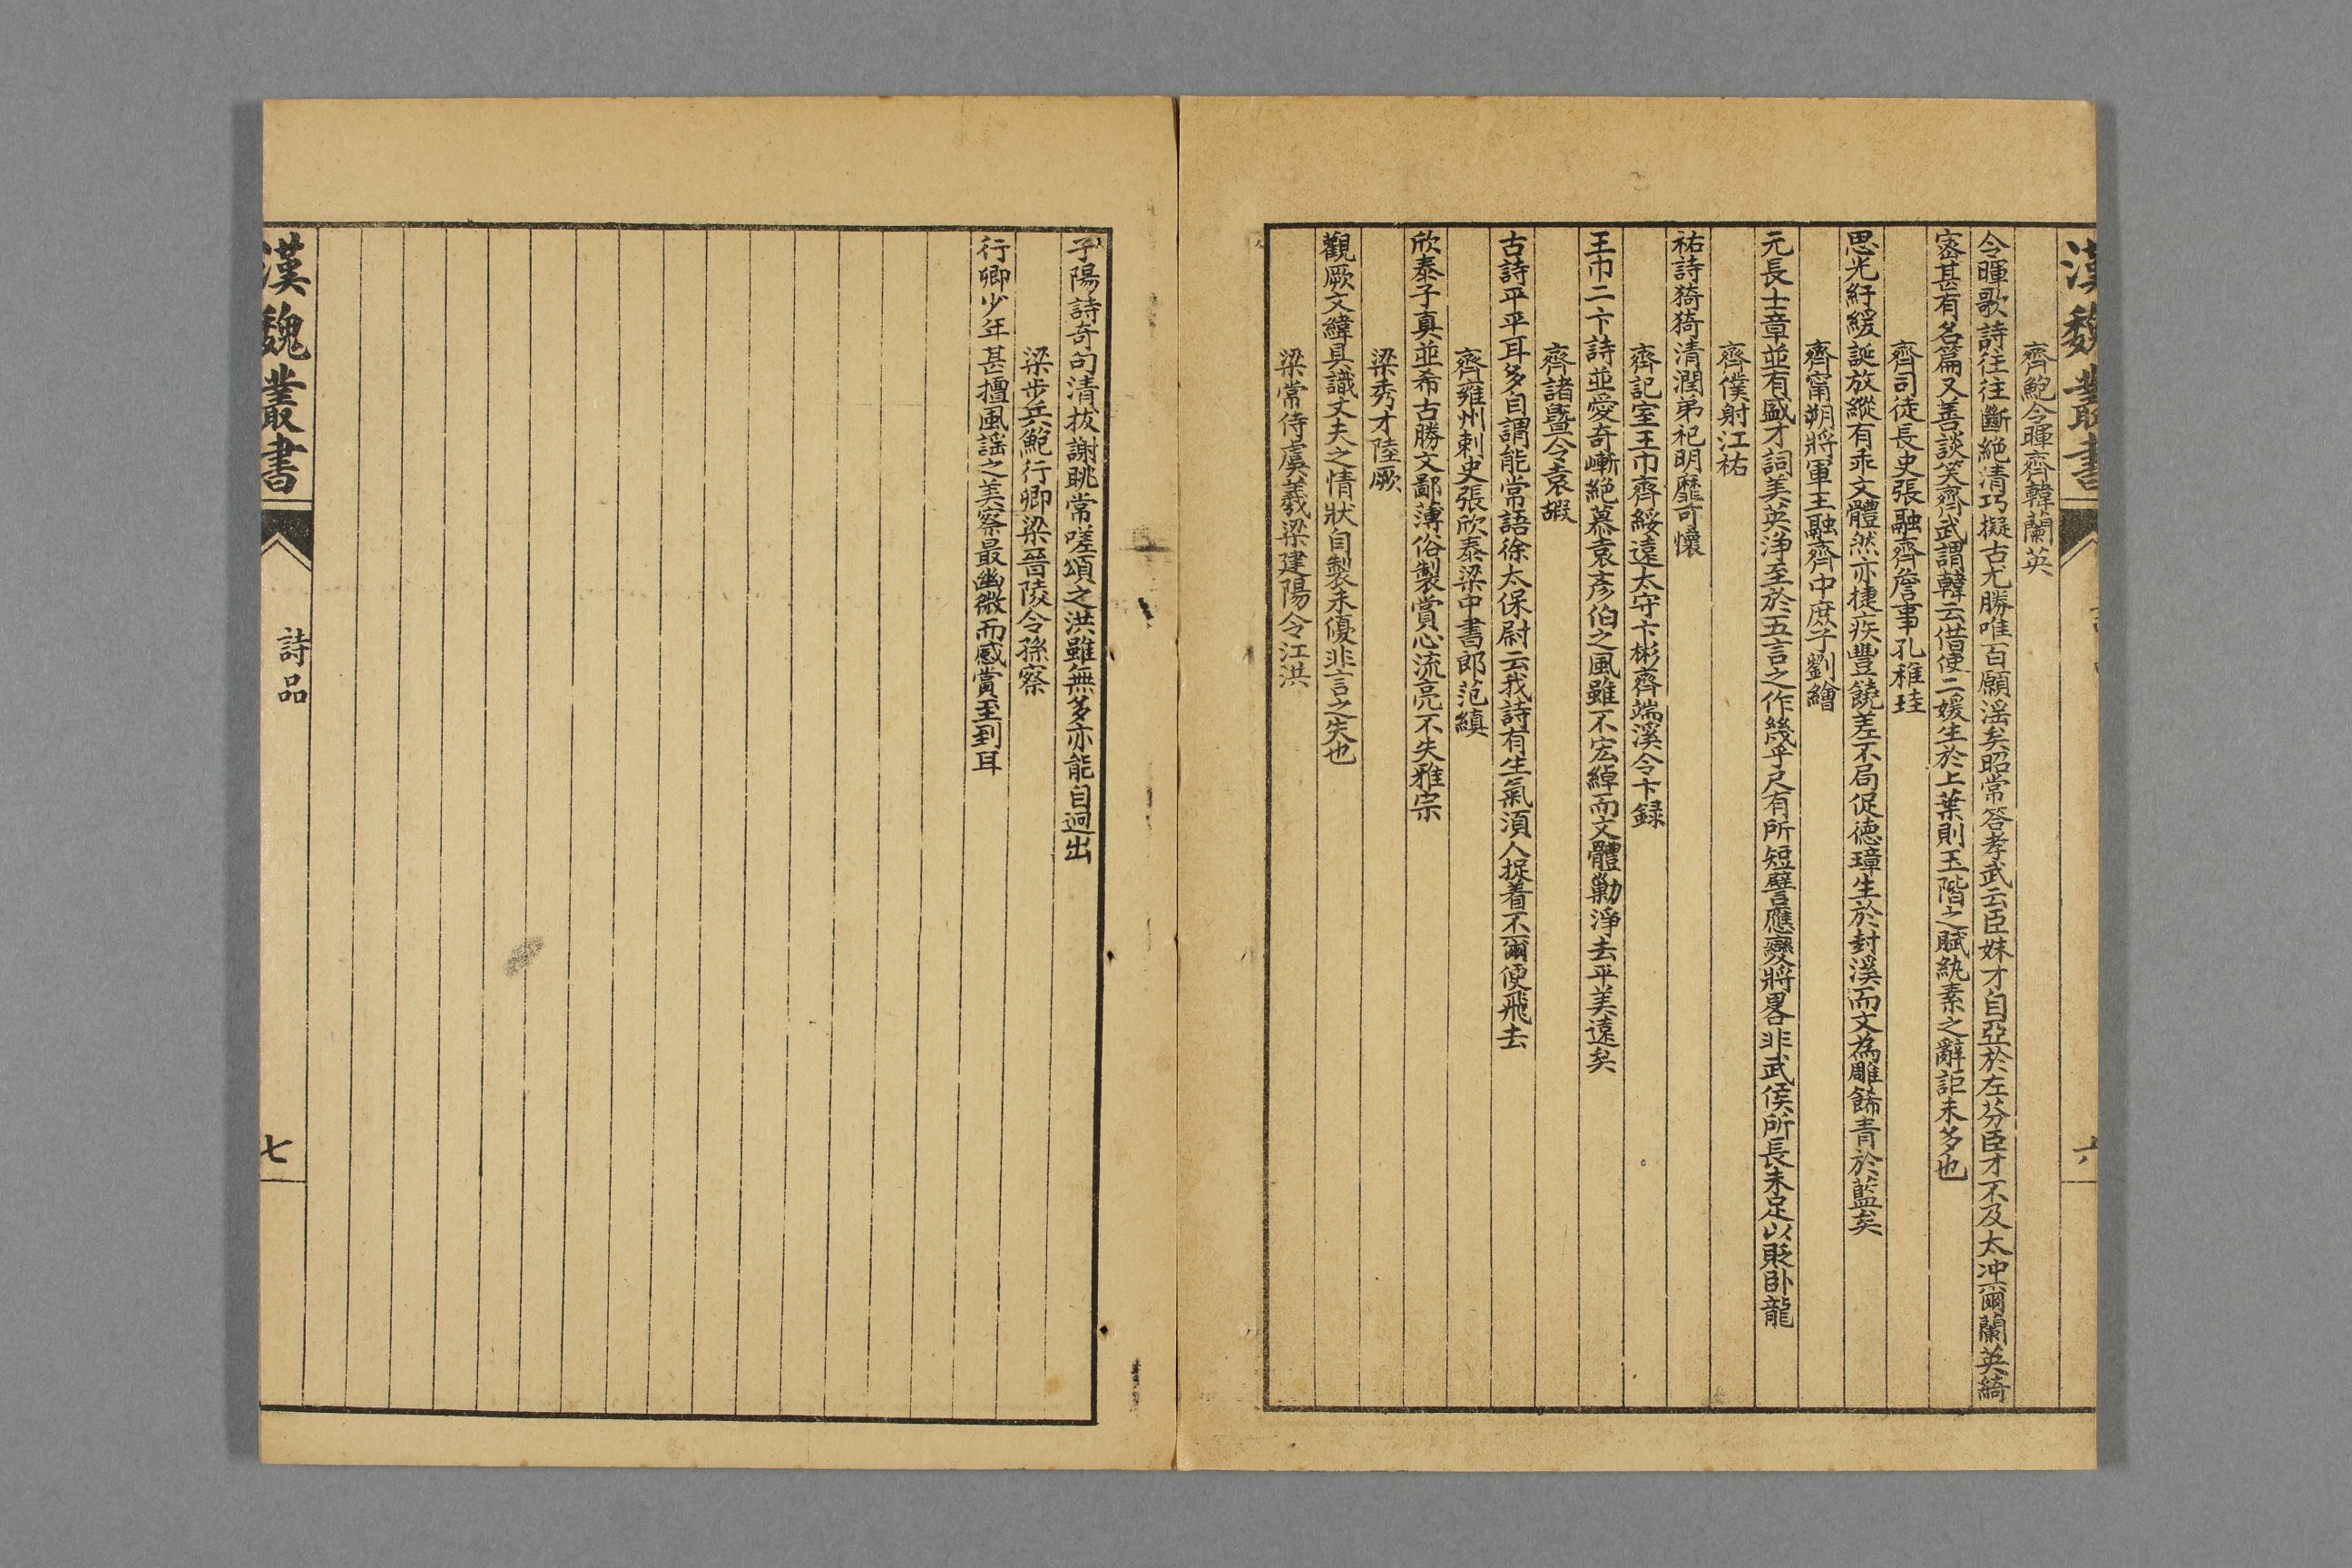 漢魏叢書
六
齊鮑令暉齊韓蘭英
令暉歌詩往往斷絕清巧擬古尤勝唯百願淫矣昭常答孝武云臣妹才自亞於左芬臣才不及太冲爾蘭英綺
密甚有名篇又善談笑齊武謂韓云借使二媛生於上葉則玉階之賦紈素之辭詎未多也
齊司徒長史張融齊詹事孔稚珪
思光紆緩誕放縱有乖文體然亦捷疾豐饒差不局促德璋生於封溪而文為雕飾青於藍矣
齊甯朔將軍王融齊中庶子劉繪
元長士章並有盛才詞美英淨至於五言之作幾乎尺有所短譬應變將畧非武侯所長未足以貶臥龍
齊僕射江祐
祐詩猗猗清潤弟祀明靡可懷
齊記室王巾齊綏遠太守卞彬齊端溪令卞録
王巾二卞詩並愛奇嶄絕慕袁彥伯之風雖不宏綽而文體勦淨去平美遠矣
齊諸暨令袁嘏
古詩平平耳多自謂能常語徐太保尉云我詩有生氣須人捉着不爾便飛去
齊雍州刺史張欣泰梁中書郎范縝
欣泰子真並希古勝文鄙薄俗製賞心流亮不失雅宗
梁秀才陸厥
觀厥文緯具識丈夫之情狀自製未優非言之失也
梁常侍虞羲梁建陽令江洪
子陽詩奇句清拔謝眺常嗟頌之洪雖無多亦能自迥出
梁步兵鮑行卿梁晉陵令孫察
行卿少年甚擅風謠之美察最幽微而感賞至到耳
漢魏叢書
詩品
七